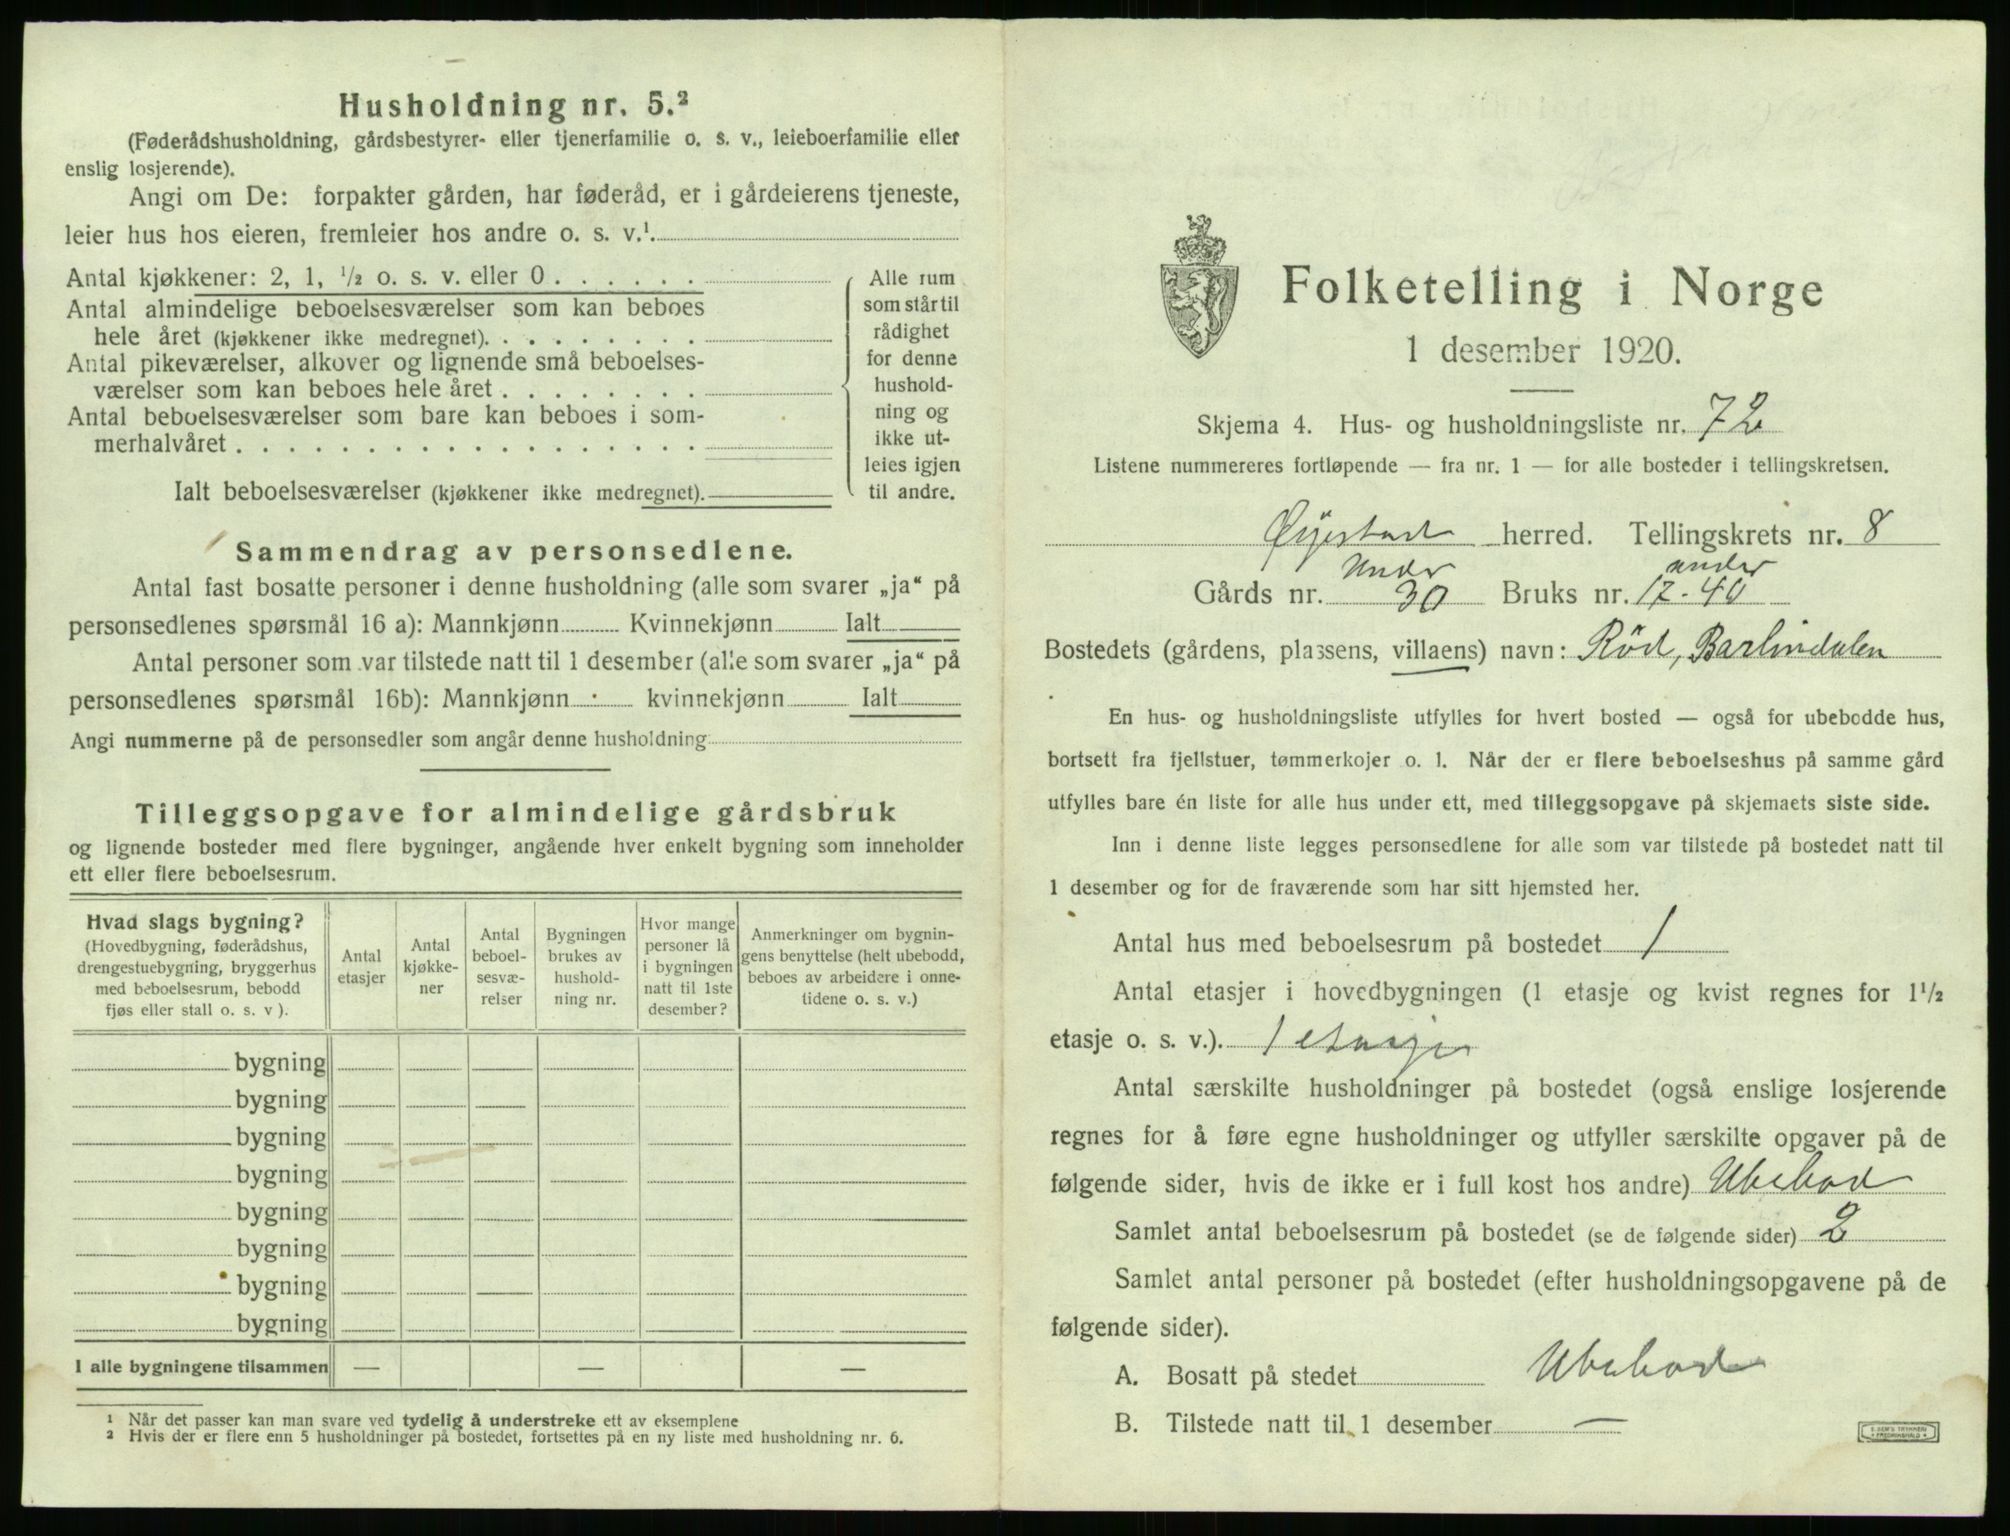 Husholdning nr. 5.²
(Føderådshusholdning, gårdsbestyrer- eller tjenerfamilie o. s. v., leieboerfamilie eller
enslig losjerende).
Angi om De: forpakter gården, har føderåd, er i gårdeierens tjeneste,
leier hus hos eieren, fremleier hos andre o. s. v.¹.
Antal kjøkkener: 2, 1, ½ o. s. v. eller 0 . . . . . .
Antal almindelige beboelsesværelser som kan beboes
hele året (kjøkkener ikke medregnet). . . . . . . . .
Antal pikeværelser, alkover og lignende små beboelses-
værelser som kan beboes hele året . . . . . . . .
Antal beboelsesværelser som bare kan beboes i som-
merhalvåret . . . . . . . . . . . . . . . . . .
Ialt beboelsesværelser (kjøkkener ikke medregnet).
Alle rum
som står til
rådighet
for denne
hushold-
ning og
ikke ut-
leies igjen
til andre.
Sammendrag av personsedlene.
Antal fast bosatte personer i denne husholdning (alle som svarer „ja“ på
personsedlenes spørsmål 16 a): Mannkjønn Kvinnekjønn Ialt
Antal personer som var tilstede natt til 1 desember (alle som svarer „ja“ på
personsedlenes spørsmål 16b): Mannkjønn kvinnekjønn Ialt
Angi nummerne på de personsedler som angår denne husholdning
Tilleggsopgave for almindelige gårdsbruk
og lignende bosteder med flere bygninger, angående hver enkelt bygning som inneholder
ett eller flere beboelsesrum.
Hvad slags bygning?
(Hovedbygning, føderådshus,
drengestuebygning, bryggerhus
med beboelsesrum, bebodd
fjøs eller stall o. s. v ).
Antal
etasjer
Antal
kjøkke-
ner
Antal
beboel-
sesvæ-
relser
Bygningen
brukes av
hushold-
ning nr.
Hvor mange
personer lå
i bygningen
natt til 1ste
desember?
Anmerkninger om bygnin-
gens benyttelse (helt ubebodd,
beboes av arbeidere i onne-
tidene o. s. v.)
bygning
bygning
bygning
bygning
bygning
bygning
bygning
bygning
I alle bygningene tilsammen — — —
¹ Når det passer kan man svare ved tydelig å understreke ett av eksemplene
² Hvis der er flere enn 5 husholdninger på bostedet, fortsettes på en ny liste med husholdning nr. 6.
Folketelling i Norge
1 desember 1920.
Skjema 4. Hus- og husholdningsliste nr. 72
Listene nummereres fortløpende — fra nr. 1 — for alle bosteder i tellingskretsen.
Øyestad herred. Tellingskrets nr. 8
under under
Gårds nr. 30 Bruks nr. 17-40
Bostedets (gårdens, plassens, villaens) navn: Röd, Barlindalen
En hus- og husholdningsliste utfylles for hvert bosted — også for ubebodde hus,
bortsett fra fjellstuer, tømmerkojer o. l. Når der er flere beboelseshus på samme gård
utfylles bare én liste for alle hus under ett, med tilleggsopgave på skjemaets siste side.
Inn i denne liste legges personsedlene for alle som var tilstede på bostedet natt til
1 desember og for de fraværende som har sitt hjemsted her.
Antal hus med beboelsesrum på bostedet 1
Antal etasjer i hovedbygningen (1 etasje og kvist regnes for 1½
etasje o. s. v.). 1 etasje
Antal særskilte husholdninger på bostedet (også enslige losjerende
regnes for å føre egne husholdninger og utfyller særskilte opgaver på de
følgende sider, hvis de ikke er i full kost hos andre) Ubebod
Samlet antal beboelsesrum på bostedet (se de følgende sider) 2
Samlet antal personer på bostedet (efter husholdningsopgavene på de
følgende sider).
A. Bosatt på stedet Ubebod
B. Tilstede natt til 1 desember —